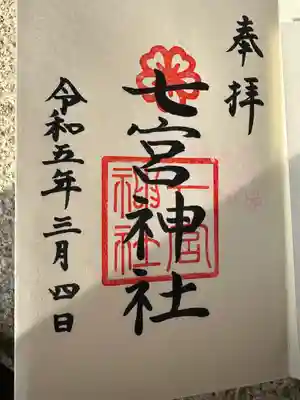 奉拝
七宮神社
七宮
神社
令和五年三月四日